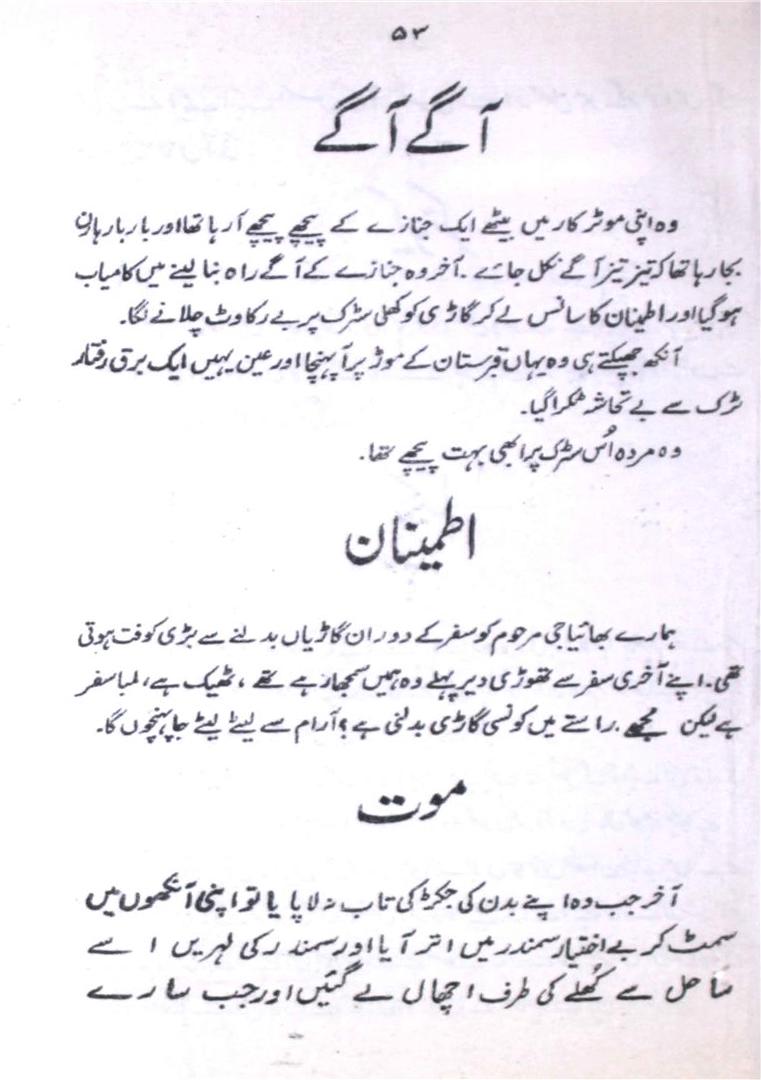 ۵۳
آگے آگے
وہ اپنی موٹر کار میں بیٹھے ایک جنازے کے پیچھے پیچھے آ رہا تھا اور بار بار ہارن
بجا رہا تھا کہ تیز تیز آگے نکل جائے۔ آخر وہ جنازے کے آگے راہ بنا لینے میں کامیاب
ہو گیا اور اطمینان کا سانس لے کر گاڑی کو کھلی سڑک پر بے رکاوٹ چلانے لگا۔
آنکھ جھپکتے ہی وہ یہاں قبرستان کے موڑ پر آ پہنچا اور عین یہیں ایک برق رفتار
ٹرک سے بے تحاشہ ٹکرا گیا۔
وہ مردہ اُس سڑک پر ابھی بہت پیچھے تھا۔
اطمینان
ہمارے بھائیاجی مرحوم کو سفر کے دوران گاڑیاں بدلنے سے بڑی کوفت ہوتی
تھی۔ اپنے آخری سفر سے تھوڑی دیر پہلے وہ ہمیں سمجھا رہے تھے، ٹھیک ہے، لمبا سفر
ہے لیکن مجھے راستے میں کونسی گاڑی بدلنی ہے؟ آرام سے لیٹے لیٹے جا پہنچوں گا۔
موت
آخر جب وہ اپنے بدن کی جکڑ کی تاب نہ لا پایا تو اپنی آنکھوں میں
سمٹ کر بے اختیار سمندر میں اتر آیا اور سمندر کی لہریں اسے
ساحل سے کُھلے کی طرف اچھال لے گئیں اور جب سارے